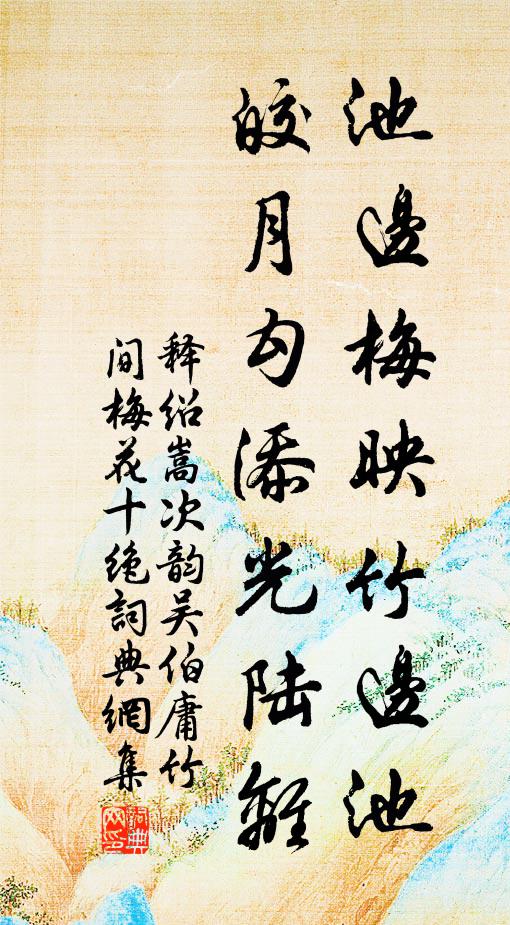 池邊梅映竹邊池
皎月勾添光陆離
释绍嵩次韵吴伯庸竹
间梅花十绝詞典網集
詞典
网印